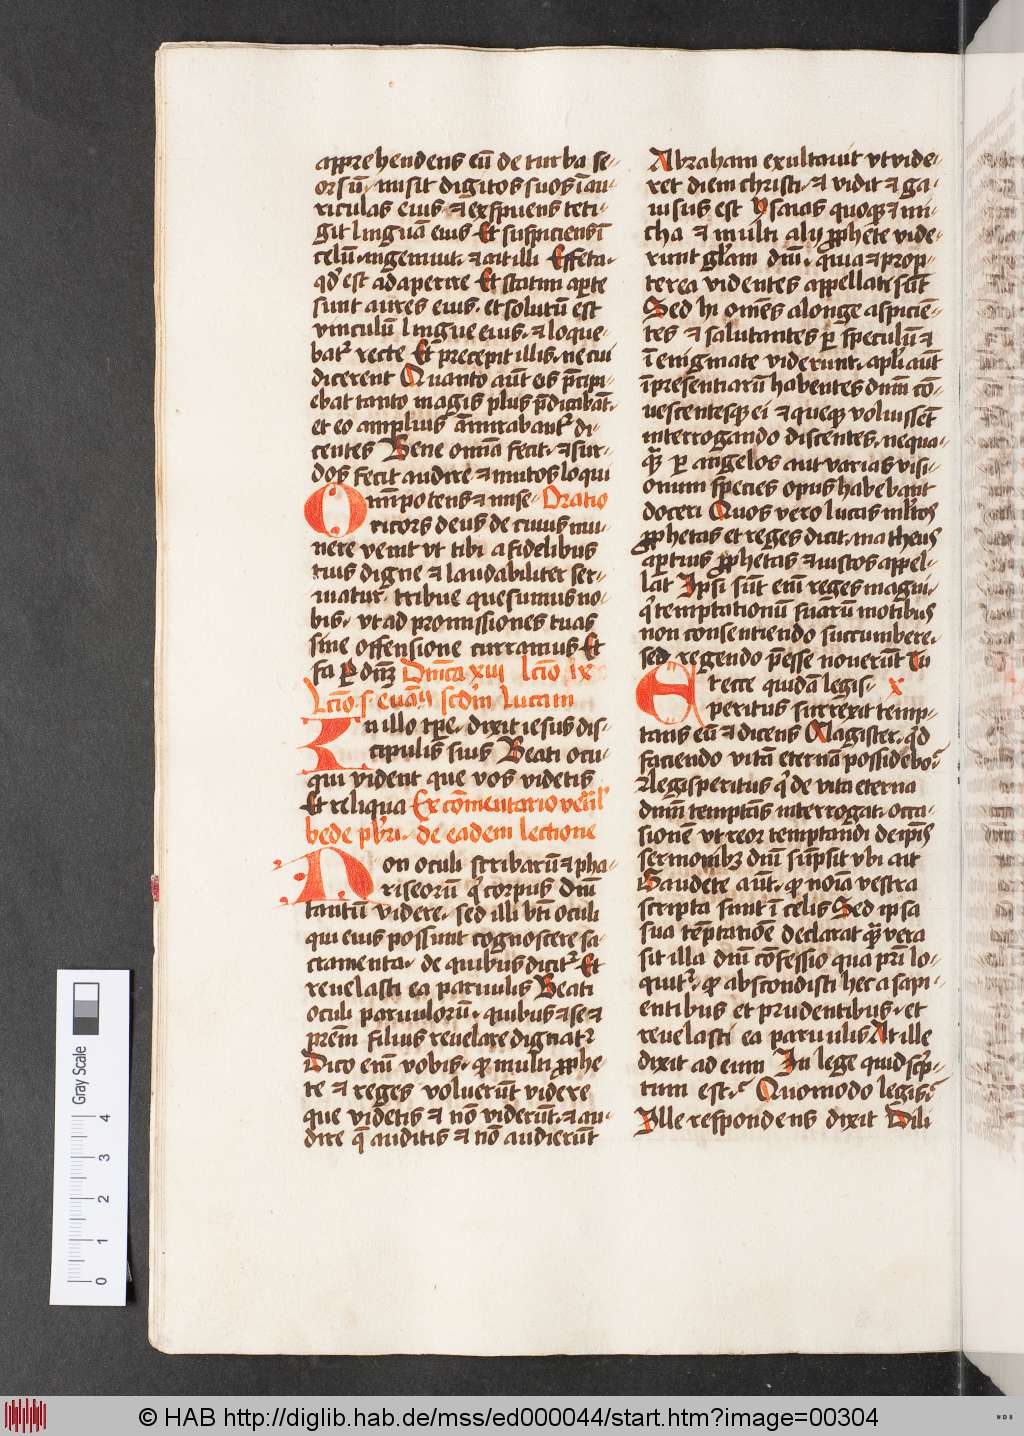 apprehendens eū de turba se⸗
orsū. misit digitos suos ī au⸗
riculas eius. ⁊ exspuens teti⸗
git linguā eius Et suspiciens ī
celū. ingemuit. ⁊ ait illi Effeta.
qđ est adaperire Et statim apͬte
sunt aures eius. et solutū est
vinculū lingue eius. ⁊ loque⸗
batᷣ recte Et precepit illis. ne cui
dicerent Quanto aūt eis p̄cipi⸗
ebat tanto magis plus p̄dicabāt.
et eo amplius āmirabantᷣ di⸗
centes Bene omīa fecit. ⁊ sur⸗
dos fecit audire ⁊ mutos loqui
Omīpotens ⁊ mise⸗ Oratio
ricors deus de cuius mu⸗
nere venit vt tibi a fidelibus
tuis digne ⁊ laudabiliter ser⸗
uiatur. tribue quesumus no⸗
bis. vt ad promissiones tuas
sine offensione curramus Et
fa ꝑ dn̄ꝫ Dn̄ica xiij lcīo ix
Lcīo. s. euāij scd̄m lucam
In illo tp̄e. dixit iesus dis⸗
cipulis suis Beati ocu⸗
qui vident que vos videtis
Et reliqua Ex cōmentario veñl'
bede pb̄ri. de eadem lectione
Non oculi scribarū ⁊ pha⸗
riseorū qͥ corpus dn̄i
tantū videre. sed illi bt̄i oculi
qui eius possunt cognoscere sa⸗
cramenta. de quibus dicitᷣ Et
reuelasti ea paruulis Beati
oculi paruulorū. quibus ⁊ se ⁊
pr̄em filius reuelare dignatᷣ
Dico eni vobis. ꝙ multi ꝓphe⸗
te ⁊ reges voluerūt videre
que videtis ⁊ nō viderūt. ⁊ au⸗
dire q̄ auditis ⁊ nō audierūt
Abraham exultauit vt vide⸗
ret diem christi. ⁊ vidit ⁊ ga⸗
uisus est Ysaias quoqꝫ ⁊ mi⸗
cha ⁊ multi alij ꝓphete vide⸗
runt gl'am dn̄i. quia ⁊ prop⸗
terea videntes appellati sūt
Sed hi omēs alonge aspiciē⸗
tes ⁊ salutantes ꝑ speculū ⁊
ī enigmate viderunt. apl'i aūt
ī presentiarū habentes dn̄m cō⸗
uescentesqꝫ ei ⁊ queqꝫ voluissēt
interrogando discentes. nequa⸗
qͣꝫ ꝑ angelos aut varias visi⸗
onum species opus habebant
doceri Quos vero lucas ml'tos
ꝓphetas et reges dicit. matheus
aꝑtius ꝓphetas ⁊ iustos appel⸗
lat Ipsi sūt eni reges magni.
qͥ temptationū suarū motibus
non consentiendo succumbere.
sed regendo p̄esse nouerūt Lu
Et ecce quidā legis⸗ x
peritus surrexit temp⸗
tans eū ⁊ dicens Magister. qͥd
faciendo vitā eternā possidebo?
Legisperitus qͥ de vita eterna
dn̄m temptās interrogat. occa⸗
sionē vt reor temptandi de ip̄is
sermonibꝫ dn̄i sūpsit vbi ait
Gaudete aūt. ꝙ noīa vestra
scripta sunt ī celis Sed ipsa
sua tēptatiōe declarat qͣꝫ vera
sit illa dn̄i cōfessio qua pr̄i lo⸗
quitᷣ. ꝙ abscondisti hec a sapi⸗
entibus et prudentibus. et
reuelasti ea paruulis At ille
dixit ad eum In lege quid scͥp⸗
tum est? Quomodo legis?
Ille respondens dixit Dili
Gray Scale
4
3
2
1
0
© HAB http://diglib.hab.de/mss/ed000044/start.htm?image=00304